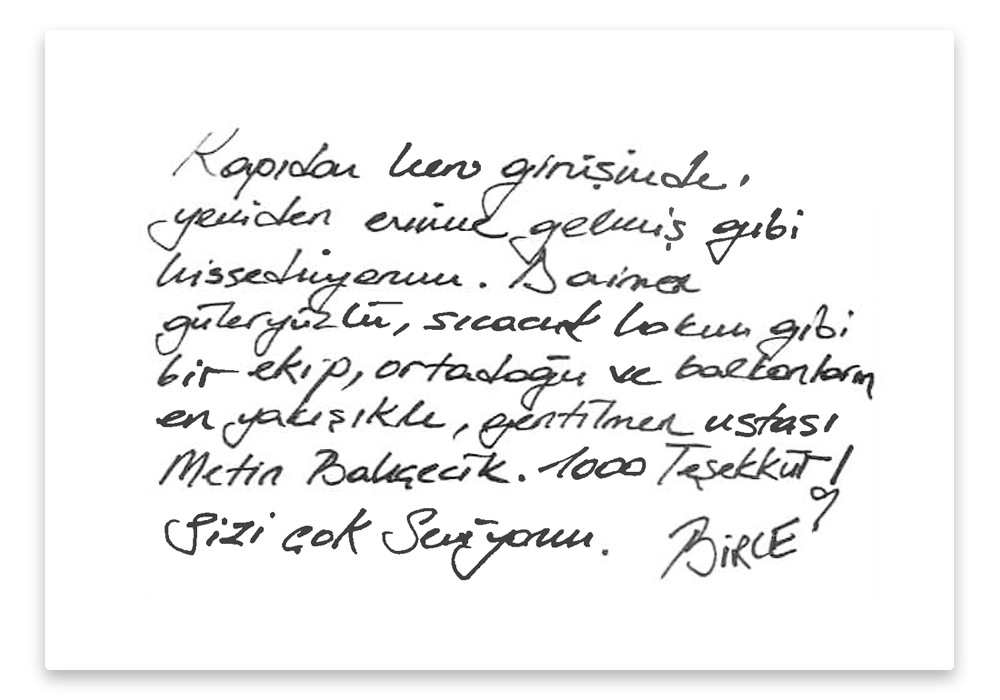 Kapıdan her girişimde,
yeniden evime gelmiş gibi
hissediyorum. Daima
güleryüzlü, sıcacık bakım gibi
bir ekip, ortadoğu ve balkanların
en yakışıklı, gentilmen ustası
Metin Bahçecik. 1000 Teşekkür!
Sizi çok Seviyorum. BİRCE